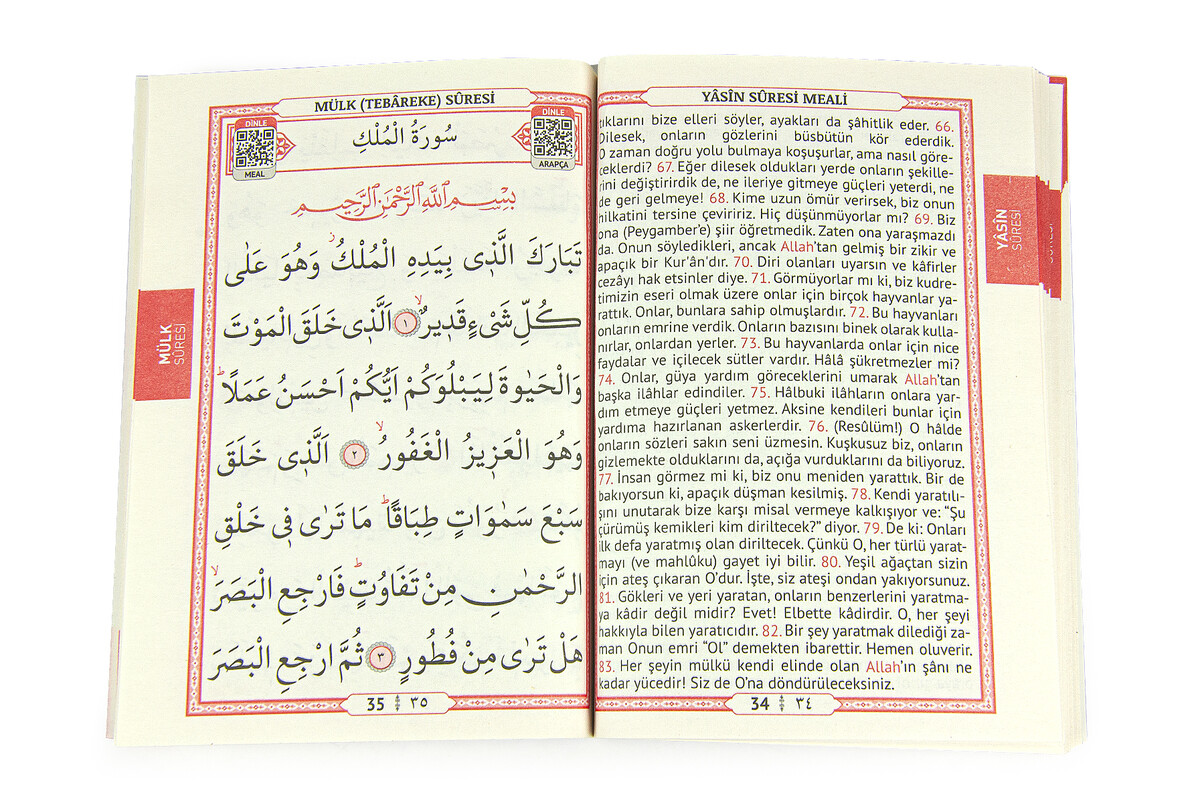 YÂSÎN SÛRESİ MEALİ
ıklarını bize elleri söyler, ayakları da şâhitlik eder. 66.
Dilesek, onların gözlerini büsbütün kör ederdik.
O zaman doğru yolu bulmaya koşuşurlar, ama nasıl göre-
ceklerdi? 67. Eğer dilesek oldukları yerde onların şekille-
rini değiştirirdik de, ne ileriye gitmeye güçleri yeterdi, ne
de geri gelmeye! 68. Kime uzun ömür verirsek, biz onun
hilkatini tersine çeviririz. Hiç düşünmüyorlar mı? 69. Biz
ona (Peygamber’e) şiir öğretmedik. Zaten ona yaraşmazdı
da. Onun söyledikleri, ancak Allah’tan gelmiş bir zikir ve
apaçık bir Kur'ân'dır. 70. Diri olanları uyarsın ve kâfirler
cezâyı hak etsinler diye. 71. Görmüyorlar mı ki, biz kudre-
timizin eseri olmak üzere onlar için birçok hayvanlar ya-
rattık. Onlar, bunlara sahip olmuşlardır. 72. Bu hayvanları
onların emrine verdik. Onların bazısını binek olarak kulla-
nırlar, onlardan yerler. 73. Bu hayvanlarda onlar için nice
faydalar ve içilecek sütler vardır. Hâlâ şükretmezler mi?
74. Onlar, güya yardım göreceklerini umarak Allah’tan
başka ilâhlar edindiler. 75. Hâlbuki ilâhların onlara yar-
dım etmeye güçleri yetmez. Aksine kendileri bunlar için
yardıma hazırlanan askerlerdir. 76. (Resûlüm!) O hâlde
onların sözleri sakın seni üzmesin. Kuşkusuz biz, onların
gizlemekte olduklarını da, açığa vurduklarını da biliyoruz.
77. İnsan görmez mi ki, biz onu meniden yarattık. Bir de
bakıyorsun ki, apaçık düşman kesilmiş. 78. Kendi yaratılı-
şını unutarak bize karşı misal vermeye kalkışıyor ve: “Şu
çürümüş kemikleri kim diriltecek?” diyor. 79. De ki: Onları
ilk defa yaratmış olan diriltecek. Çünkü O, her türlü yarat-
mayı (ve mahlûku) gayet iyi bilir. 80. Yeşil ağaçtan sizin
için ateş çıkaran O’dur. İşte, siz ateşi ondan yakıyorsunuz.
81. Gökleri ve yeri yaratan, onların benzerlerini yaratma-
ya kâdir değil midir? Evet! Elbette kâdirdir. O, her şeyi
hakkıyla bilen yaratıcıdır. 82. Bir şey yaratmak dilediği za-
man Onun emri “Ol” demekten ibarettir. Hemen oluverir.
83. Her şeyin mülkü kendi elinde olan Allah’ın şânı ne
kadar yücedir! Siz de O’na döndürüleceksiniz.
34 ٣٤
YÂSÎN
SÛRESİ
MÜLK (TEBÂREKE) SÛRESİ
DİNLE
ARAPÇA
سُورَةُ الْمُلْكِ
DİNLE
MEAL
بِسْمِ اللّٰهِ الرَّحْمٰنِ الرَّحِيمِ
تَبَارَكَ الَّذٖى بِيَدِهِ الْمُلْكُ وَهُوَ عَلٰى
كُلِّ شَىْءٍ قَدٖيرٌ ١ اَلَّذٖى خَلَقَ الْمَوْتَ
وَالْحَيٰوةَ لِيَبْلُوَكُمْ اَيُّكُمْ اَحْسَنُ عَمَلًا
وَهُوَ الْعَزٖيزُ الْغَفُورُ ٢ اَلَّذٖى خَلَقَ
سَبْعَ سَمٰوَاتٍ طِبَاقًا مَا تَرٰى فٖى خَلْقِ
الرَّحْمٰنِ مِنْ تَفَاوُتٍ فَارْجِعِ الْبَصَرَ
هَلْ تَرٰى مِنْ فُطُورٍ ٣ ثُمَّ ارْجِعِ الْبَصَرَ
35 ٣٥
MÜLK
SÛRESİ